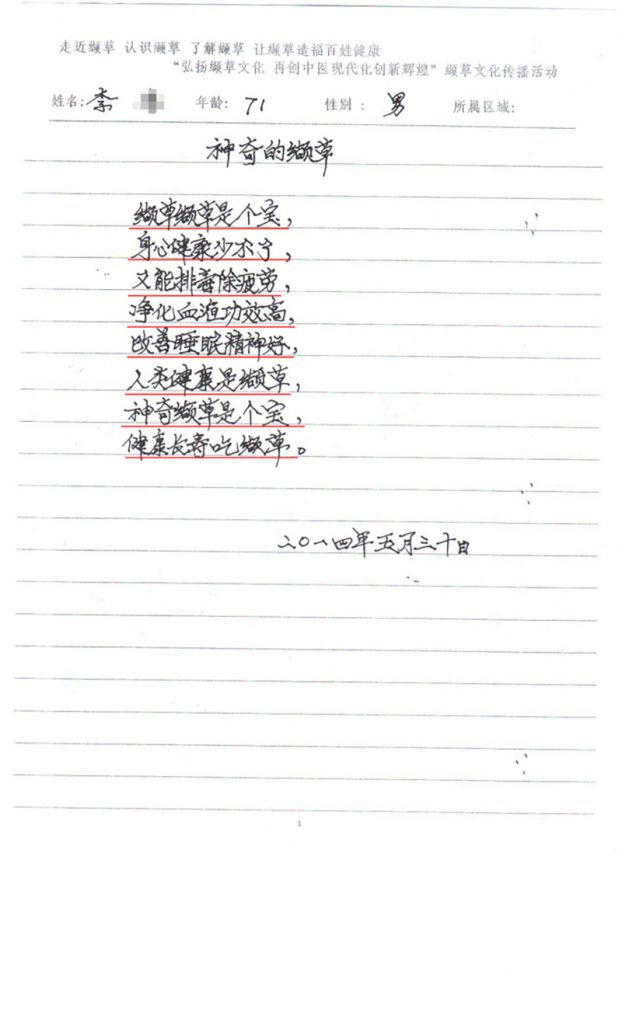 走近缬草 认识缬草 了解缬草 让缬草造福百姓健康
“弘扬缬草文化 再创中医现代化创新辉煌”缬草文化传播活动
姓名: 李 年龄: 71 性别: 男 所属区域:
神奇的缬草
缬草缬草是个宝,
身心健康少不了,
又能排毒除疲劳,
净化血液功效高,
改善睡眠精神好,
人类健康是缬草,
神奇缬草是个宝,
健康长寿吃缬草。
二〇一四年五月三十日
1